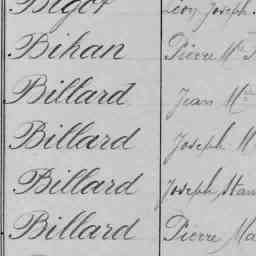 Bigot Léon Joseph
Bihan Pierre Me
Billard Jean Me
Billard Joseph M
Billard Joseph Stan
Billard Pierre Ma